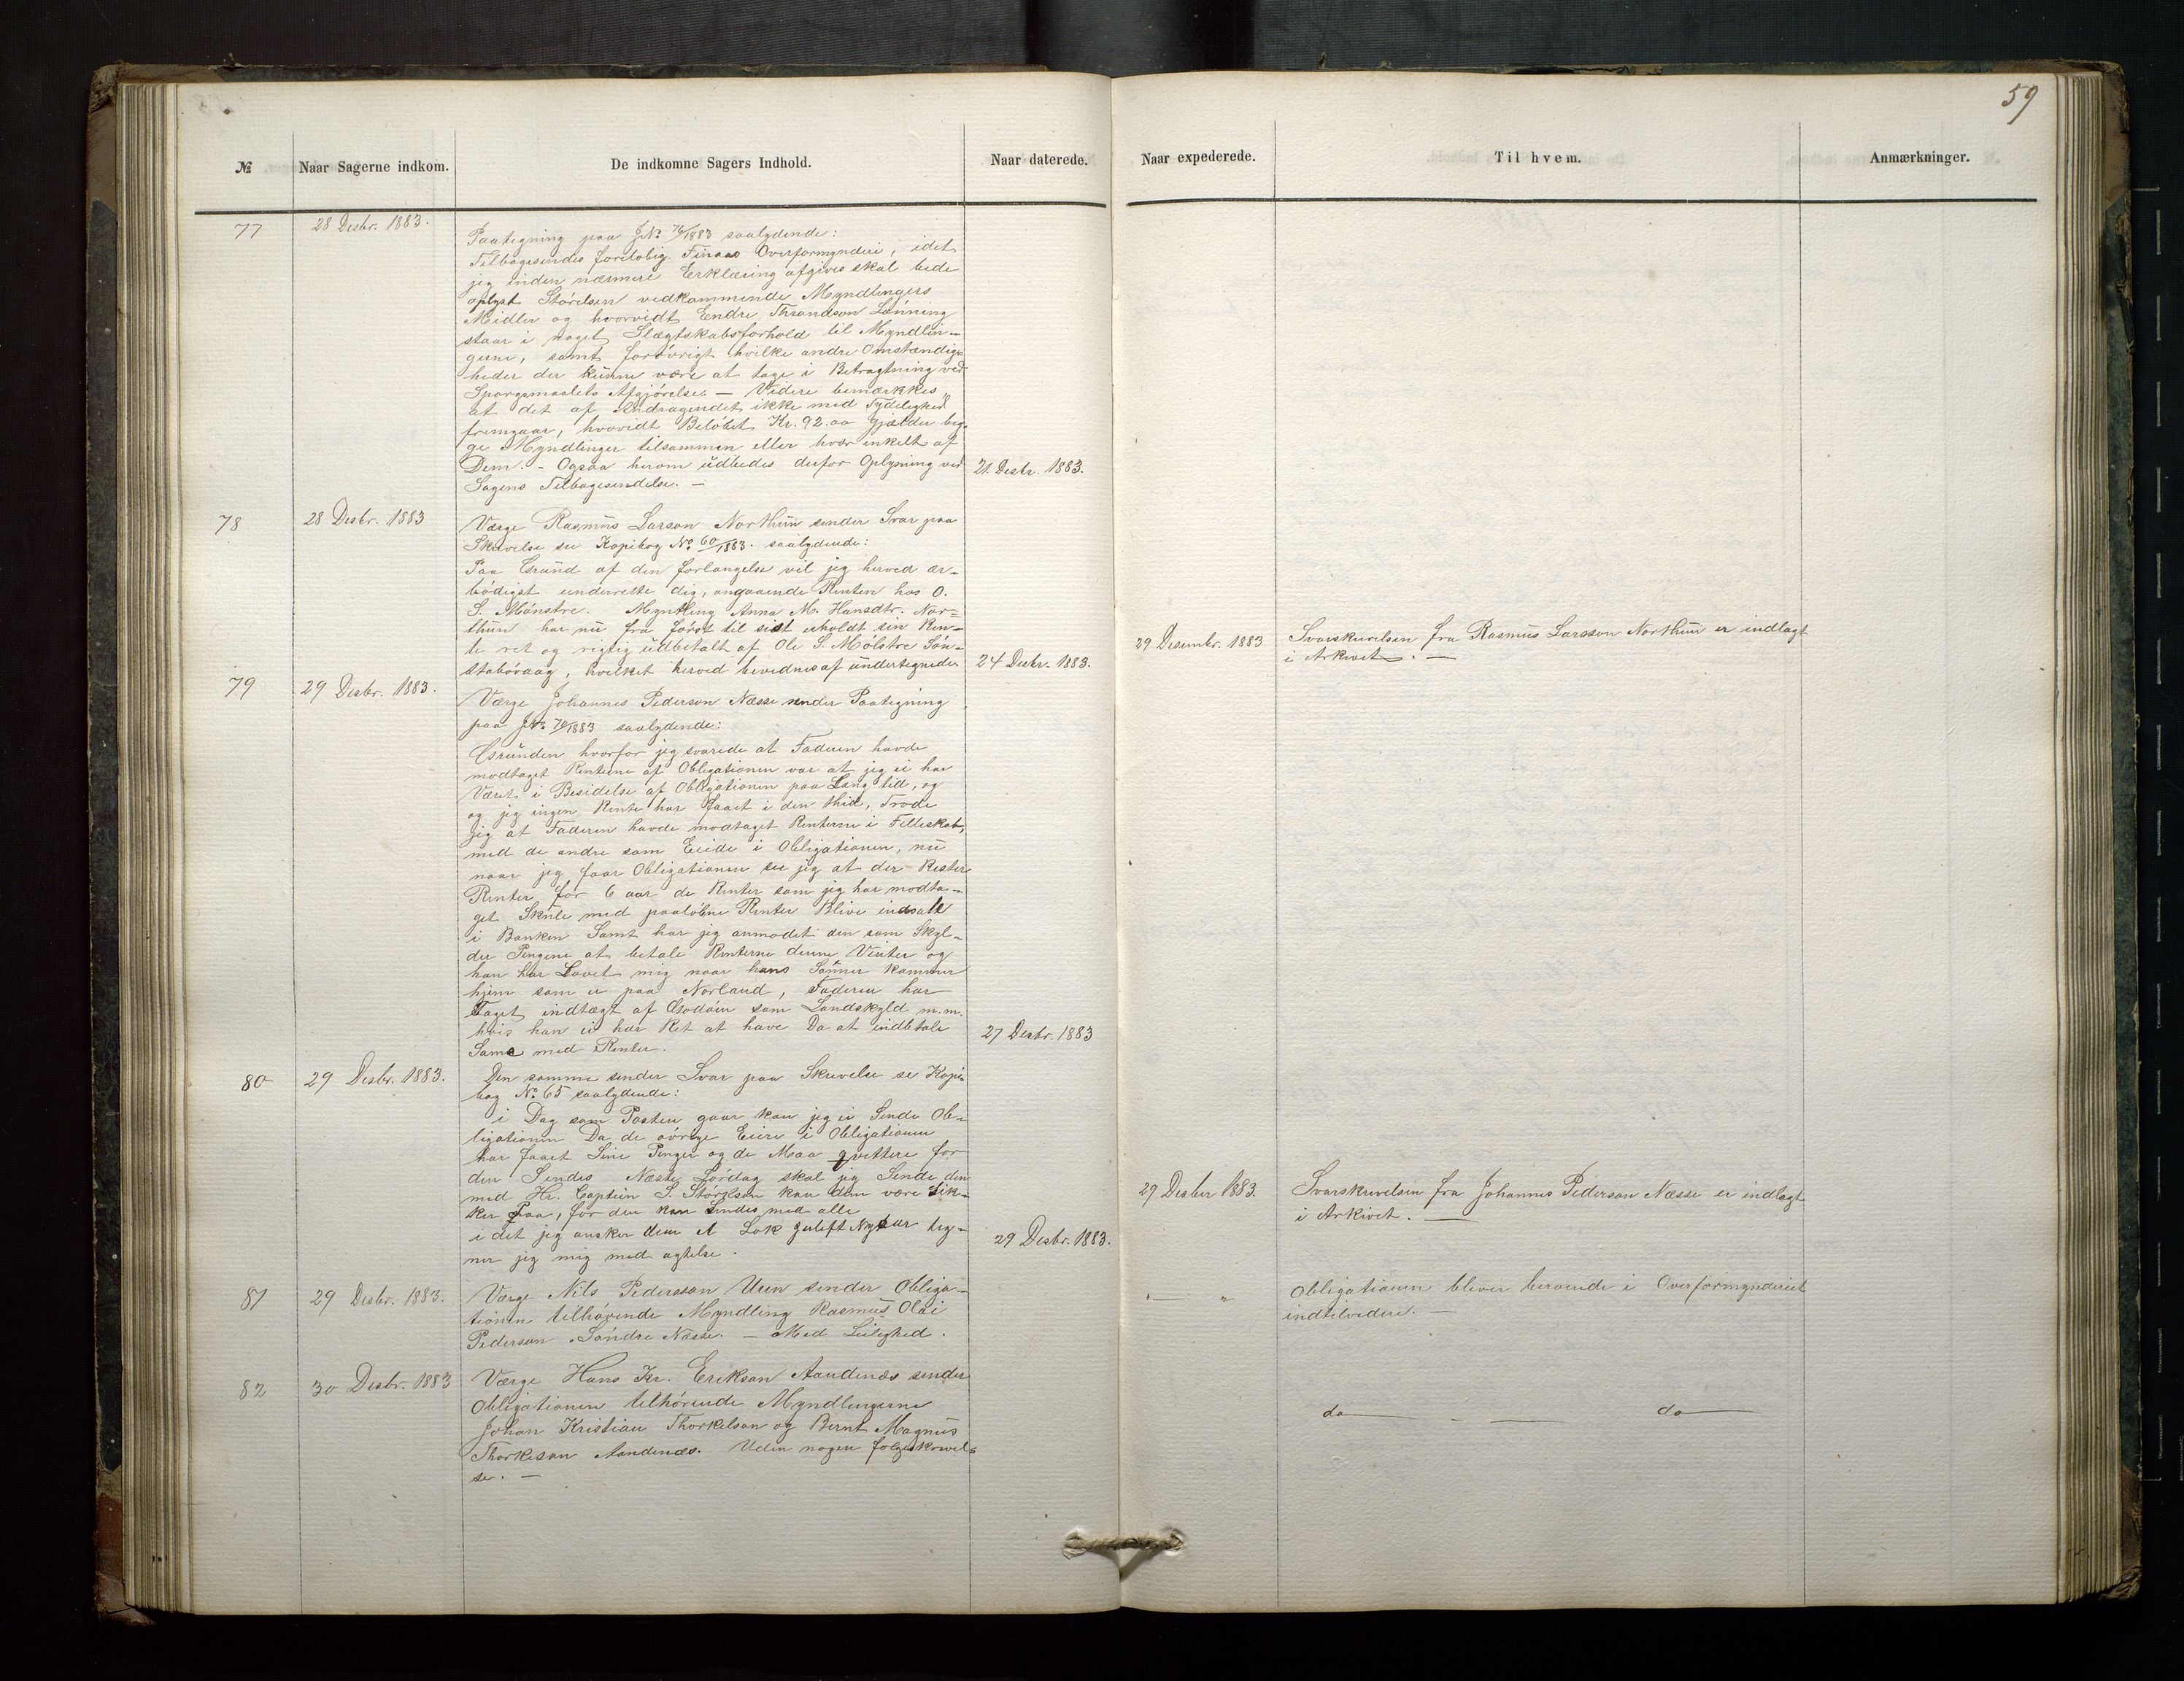 59
№ Naar Sagerne indkom. De indkomne Sagers Indhold. Naar daterede. Naar expederede. Til hvem. Anmærkninger.
77 28 Desbr. 1883.
Paategning paa JNo 76/1883 saalydende:
Tilbagesendes foreløbig Finaas Overformynderi, idet
jeg inden nærmere Erklæring afgives skal bede
oplyst Størelsen vedkommende Myndlingers
Midler og hvorvidt Endre Throndson Lønning
staar i noget Slægtskabsforhold til Myndlin-
gerne, samt forøvrigt hvilke andre Omstændig-
heder der kunne være at tage i Betragtning ved
Spørgsmaalets Afgjørelse. — Videre bemærkes
at det af Andragendet ikke med Tydelighed
fremgaar, hvorvidt Beløbet Kr. 92.00 gjælder beg-
ge Myndlinger tilsammen eller hver enkelt af
Dem. - Ogsaa herom udbedes derfor Oplysning ved 21. Desbr. 1883.
Sagens Tilbagesendelse. —
78 28 Desbr. 1883 Værge Rasmus Larson Northun sender Svar paa
Skrivelse see Kopibog No 60/1883. saalydende:
Paa Grund af den forlangelse vil jeg herved ær-
bødigst underrette dig, angaaende Renten hos O.
S. Mønstre. Myntling Anna M. Hansdtr. Nor-
thun har nu fra først til sidst erholdt sin Ren-
te ret og rigtig udbetalt af Ole S. Mølstre Søn-
stabøvaag, hvilket herved bevidnes af undertegnede. 24 Desbr. 1883.
29 Desember 1883 Svarskrivelsen fra Rasmus Larsson Northun er indlagt
i Arkivet. —
79 29 Desbr. 1883.
Værge Johannes Pederson Næsse sender Paategning
paa JNo 74/1883 saalydende:
Grunden hvorfor jeg svarede at Faderen havde
modtaget Renterne af Obligationen var at jeg ei har
Været i Besidelse af Obligationen paa Lang tid, og
og jeg ingen Rente har faaet i den thid, Trode
jeg at Faderen havde modtaget Renterne i Felleskab,
med de andre som Eiede i Obligationen, nu
naar jeg faar Obligationen see jeg at der Rester
Renter for 6 aar de Renter som jeg har modta-
get Skule med paaløbne Renter Blive indsatt
i Banken Samt har jeg anmodet den som Skyl-
der Pengene at betale Renterne denne Vinter og
han har Lovet mig naar hans Sønner kommer
hjem som er paa Norland, Faderen har
Taget indtægt af Godøm som Landskyld m.m.
hvis han ei har Ret at have Da at indbetale 27 Desbr. 1883
Same med Renter.
80 29 Desbr. 1883. Den samme sender Svar paa Skrivelse se Kopi-
bog No 65 saalydende:
i Dag som Posten gaar kan jeg ei Sende Ob-
ligationen Da de øvrige Eiere i Obligationen
har faaet Sine Penger og de Maa qvittere for
den Sendes Næste Lørdag skal jeg Sende den
med Hr. Captein S. Størksen kan den være sik-
ker paa, for den kan Sendes med alle
i det jeg ønsker dem et Lok  Nytaar teg-
ner jeg mig med agtelse. 29 Desbr. 1883.
29 Desber 1883. Svarskrivelsen fra Johannes Pederson Næsse er indlagt
i Arkivet. —
81 29 Desbr. 1883. Værge Nils Pedersson Uren sender Obliga-
tionen tilhørende Myndling Rasmus Olai
Pederson Søndre Næsse. — Med Leilighed.
" — " Obligationen bliver beroende i Overformynderiet
indtilvidere. —
82 30 Desbr. 1883 Værge Hans Kr. Erikson Aandenæs sender
Obligationen tilhørende Myndlingerne
Johan Kristian Thorkelson og Bernt Magnus
Thorkeson Aandenæs. Uden nogen følgeskrivel-
se. —
do — - — do —